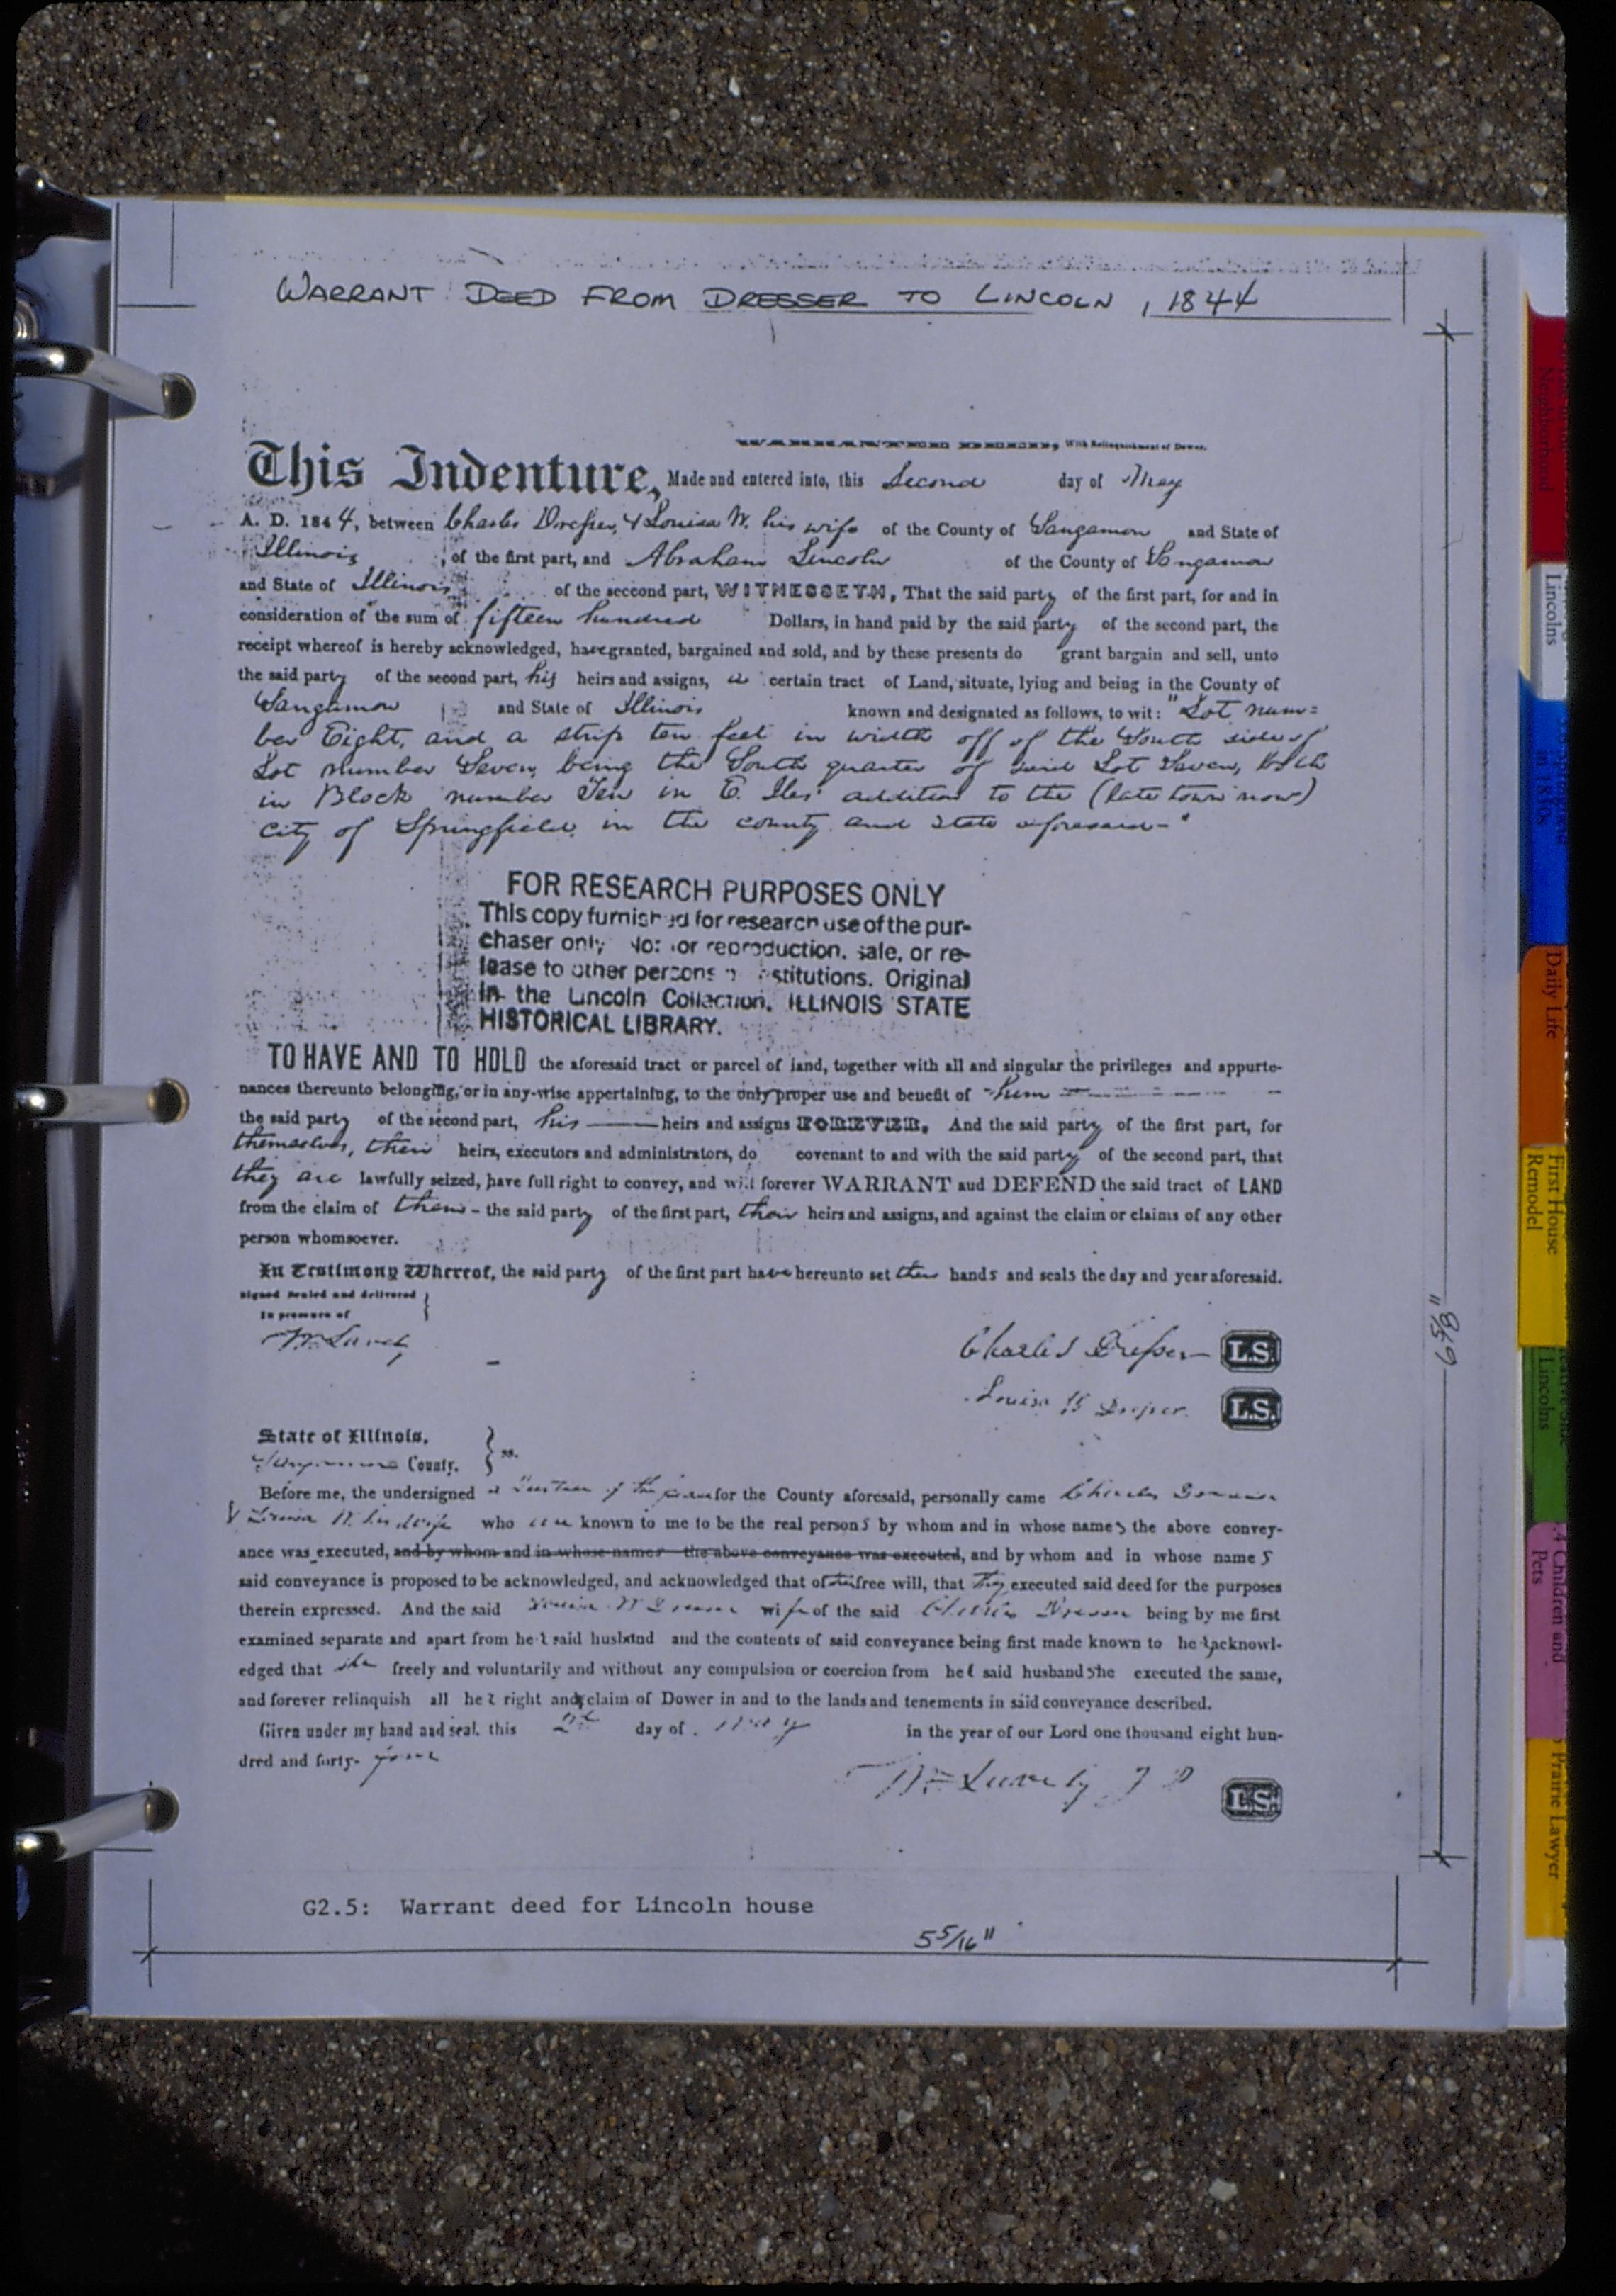 WARRANT DEED FROM DRESSER TO LINCOLN, 1844
WARRANTEE DEED, With Relinquishment of Dower.
This Indenture, Made and entered into, this Second day of May
A. D. 1844, between Charles Dresser, & Louisa W. his wife of the County of Sangamon and State of
Illinois, of the first part, and Abraham Lincoln of the County of Sangamon
and State of Illinois of the second part, WITNESSETH, That the said party of the first part, for and in
consideration of the sum of fifteen hundred Dollars, in hand paid by the said party of the second part, the
receipt whereof is hereby acknowledged, have granted, bargained and sold, and by these presents do grant bargain and sell, unto
the said party of the second part, his heirs and assigns, a certain tract of Land, situate, lying and being in the County of
Sangamon and State of Illinois known and designated as follows, to wit: "Lot num=
ber Eight, and a strip ten feet in width off of the South side of
Lot number Seven, being the South quarter of said Lot Seven, both
in Block number Ten in E. Iles' addition to the (late town now)
city of Springfield, in the county and State aforesaid-"
FOR RESEARCH PURPOSES ONLY
This copy furnished for research use of the pur-
chaser only. Not for reproduction, sale, or re-
lease to other persons or institutions. Original
in the Lincoln Collection, ILLINOIS STATE
HISTORICAL LIBRARY.
TO HAVE AND TO HOLD the aforesaid tract or parcel of land, together with all and singular the privileges and appurte-
nances thereunto belonging, or in any-wise appertaining, to the only proper use and benefit of him
the said party of the second part, his heirs and assigns FOREVER. And the said party of the first part, for
themselves, their heirs, executors and administrators, do covenant to and with the said party of the second part, that
they are lawfully seized, have full right to convey, and will forever WARRANT and DEFEND the said tract of LAND
from the claim of them - the said party of the first part, their heirs and assigns, and against the claim or claims of any other
person whomsoever.
In Testimony Whereof, the said party of the first part have hereunto set their hands and seals the day and year aforesaid.
Signed Sealed and delivered
In presence of
Charles Dresser L.S.
Louisa W Dresser L.S.
State of Illinois,
Sangamon County. } ss.
Before me, the undersigned a Justice of the peace for the County aforesaid, personally came Charles Dresser
& Louisa W. his wife who are known to me to be the real persons by whom and in whose names the above convey-
ance was executed, and by whom and in whose names the above conveyance was executed, and by whom and in whose names
said conveyance is proposed to be acknowledged, and acknowledged that of their free will, that they executed said deed for the purposes
therein expressed. And the said Louisa W Dresser wife of the said Charles Dresser being by me first
examined separate and apart from her said husband and the contents of said conveyance being first made known to her acknowl-
edged that she freely and voluntarily and without any compulsion or coercion from her said husband she executed the same,
and forever relinquish all her right and claim of Dower in and to the lands and tenements in said conveyance described.
Given under my hand and seal, this 2d day of May in the year of our Lord one thousand eight hun-
dred and forty-four
J P L.S.
G2.5: Warrant deed for Lincoln house
5 5/16"
6 5/8"
Neighborhood
Lincolns
in 1850s
Daily Life
First House
Remodel
Lincolns
Children and
Pets
Prairie Lawyer